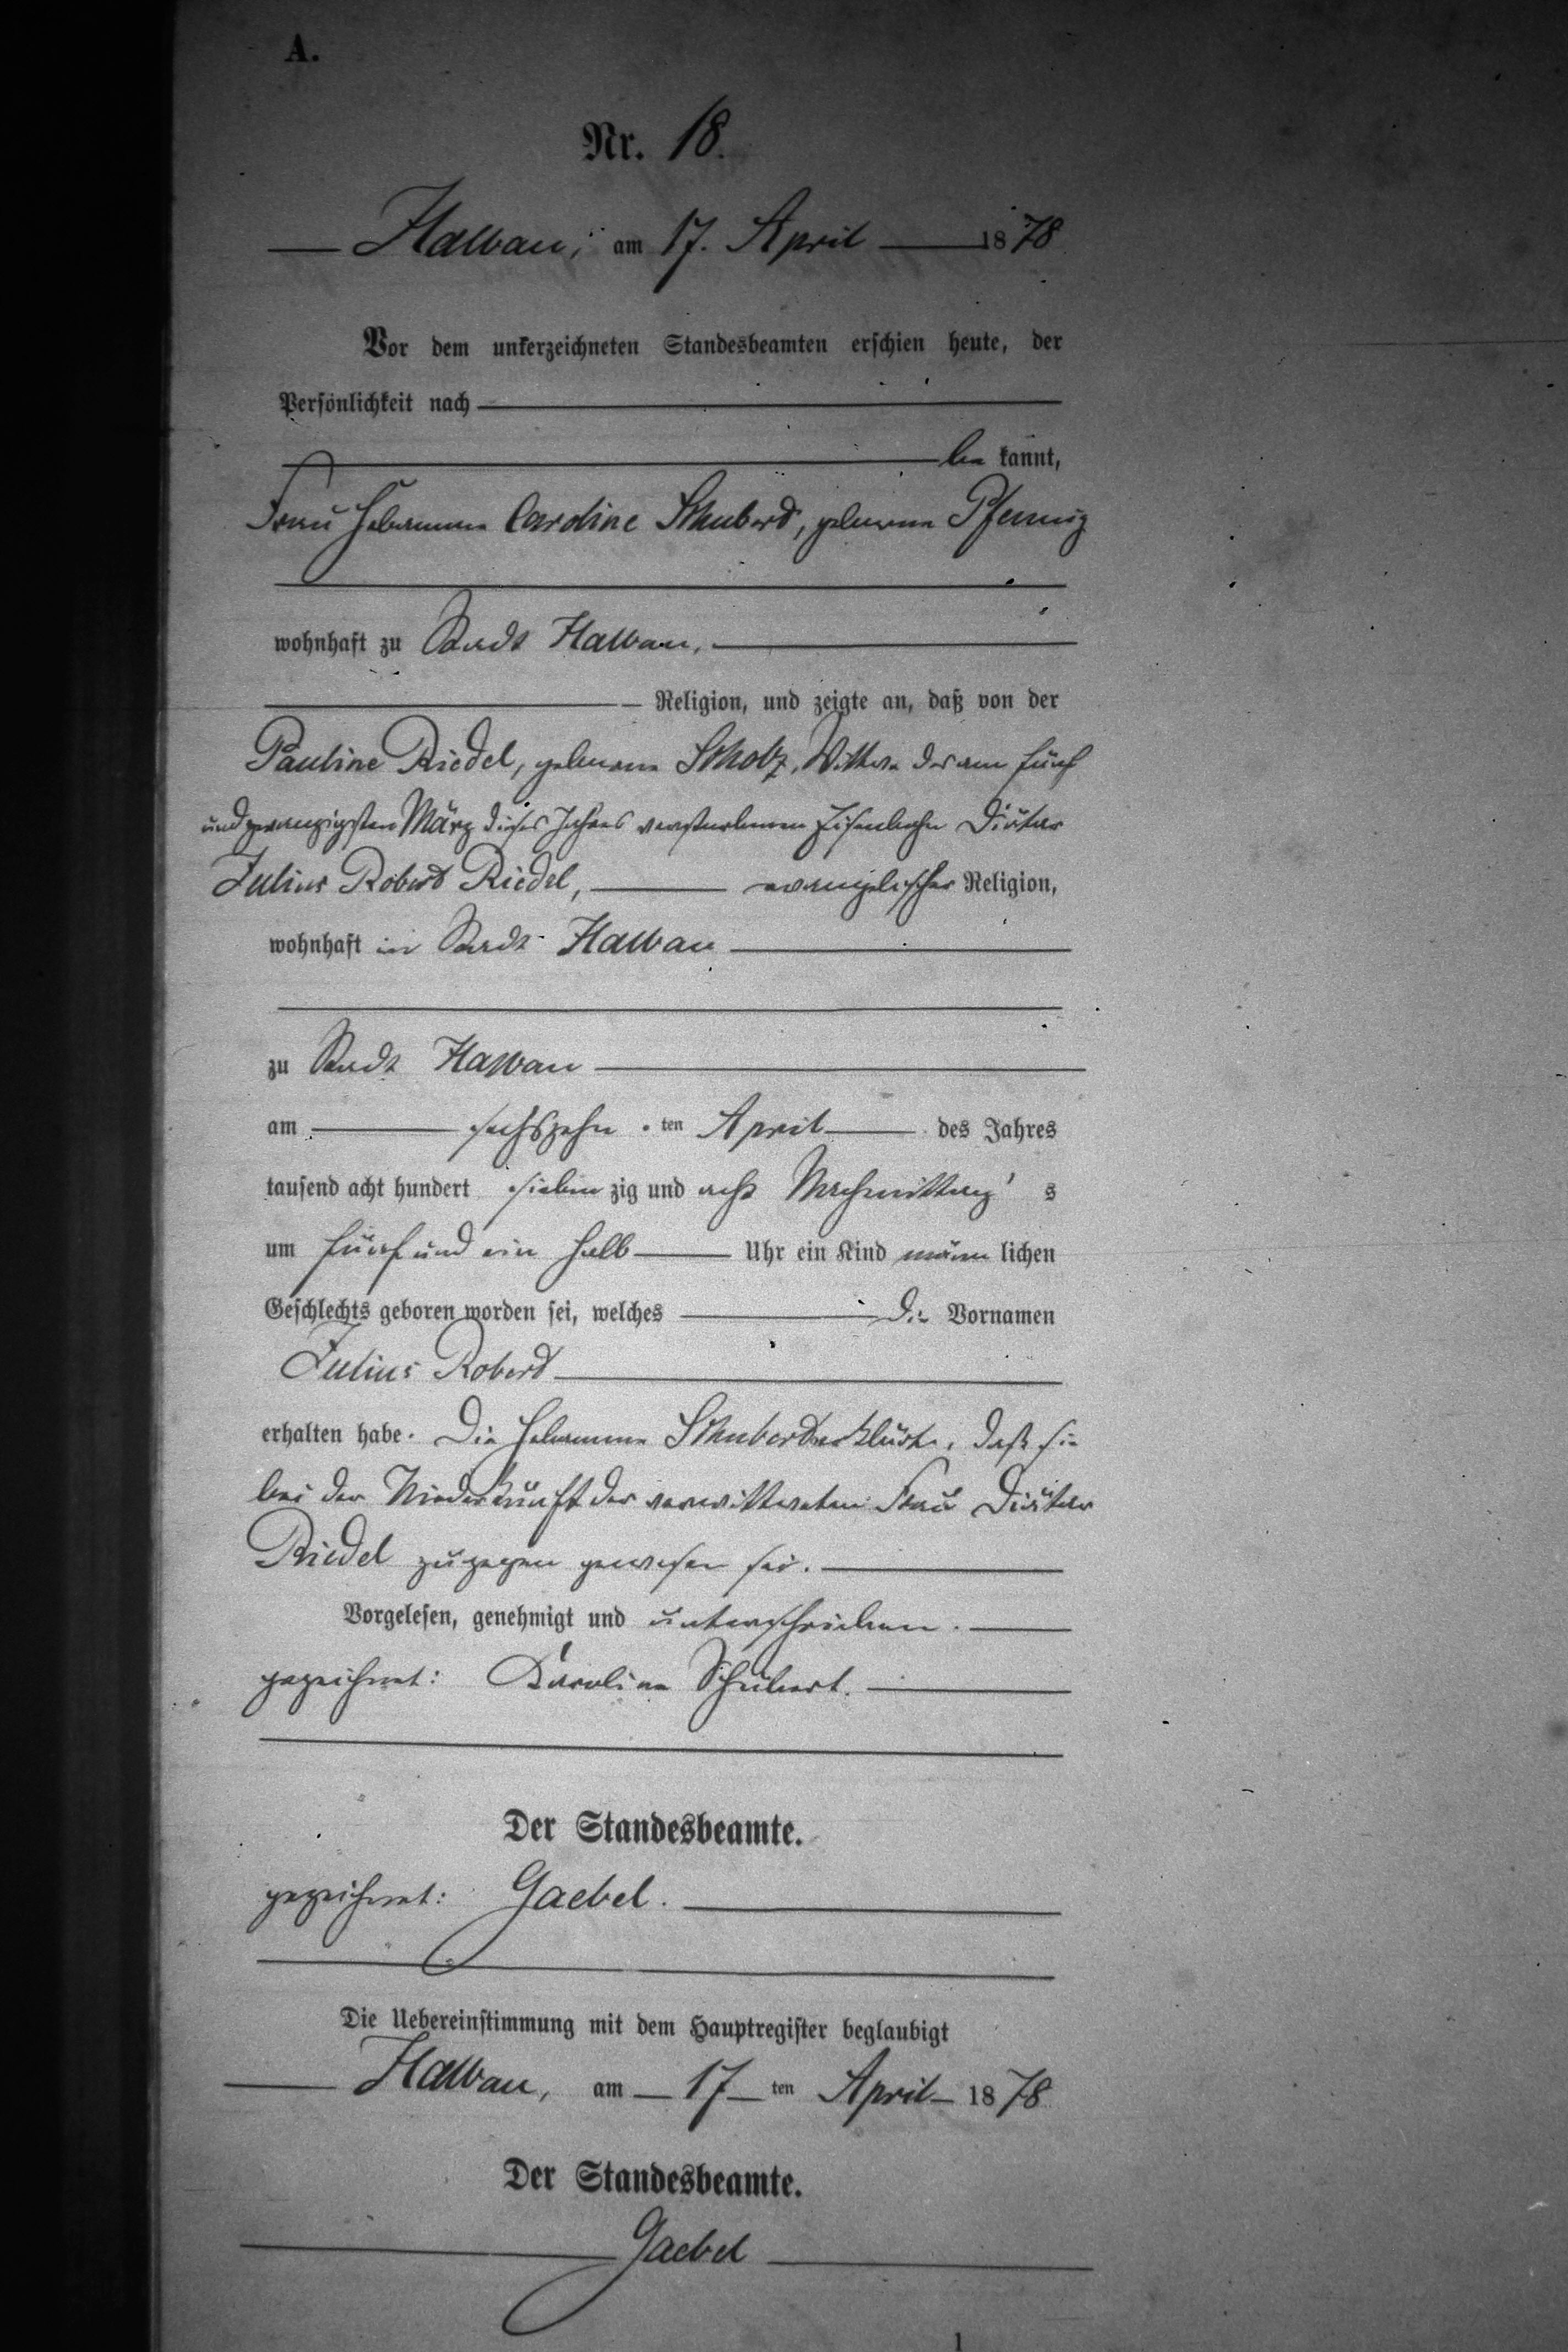 A.
Nr. 18.
Halbau, am 17. April 1878
Vor dem unterzeichneten Standesbeamten erschien heute, der
Persönlichkeit nach
be kannt,
Frau Hebamme Caroline Schubert, geborene Pfennig
wohnhaft zu Stadt Halbau,
Religion, und zeigte an, daß von der
Pauline Riedel, geborene Scholz, Wittwe des am fünf
und zwanzigsten März dieses Jahres verstorbenen Eisenbahn Diätar
Julius Robert Riedel, evangelischer Religion,
wohnhaft in Stadt Halbau
zu Stadt Halbau
am sechszehn ten April des Jahres
tausend acht hundert sieben zig und acht Nachmittag's
um fünf und ein halb Uhr ein Kind männ lichen
Geschlechts geboren worden sei, welches die Vornamen
Julius Robert
erhalten habe. Die Hebamme Schubert erklärte, daß sie
bei der Niederkunft der verwittweten Frau Diätar
Riedel zugegen gewesen sei.
Vorgelesen, genehmigt und unterschrieben.
gezeichnet: Karoline Schubert.
Der Standesbeamte.
gezeichnet: Gaebel.
Die Uebereinstimmung mit dem Hauptregister beglaubigt
Halbau, am 17 ten April 1878
Der Standesbeamte.
Gaebel
1